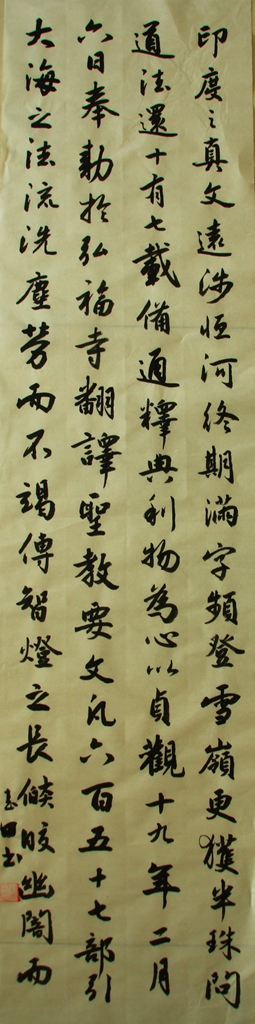 印度之真文遠涉恒河終期滿字頻登雪嶺更獲半珠問
道法還十有七載備通釋典利物為心以貞觀十九年二月
六日奉勅於弘福寺翻譯聖教要文凡六百五十七部引
大海之法流洗塵勞而不竭傳智燈之長焰皎幽闇而